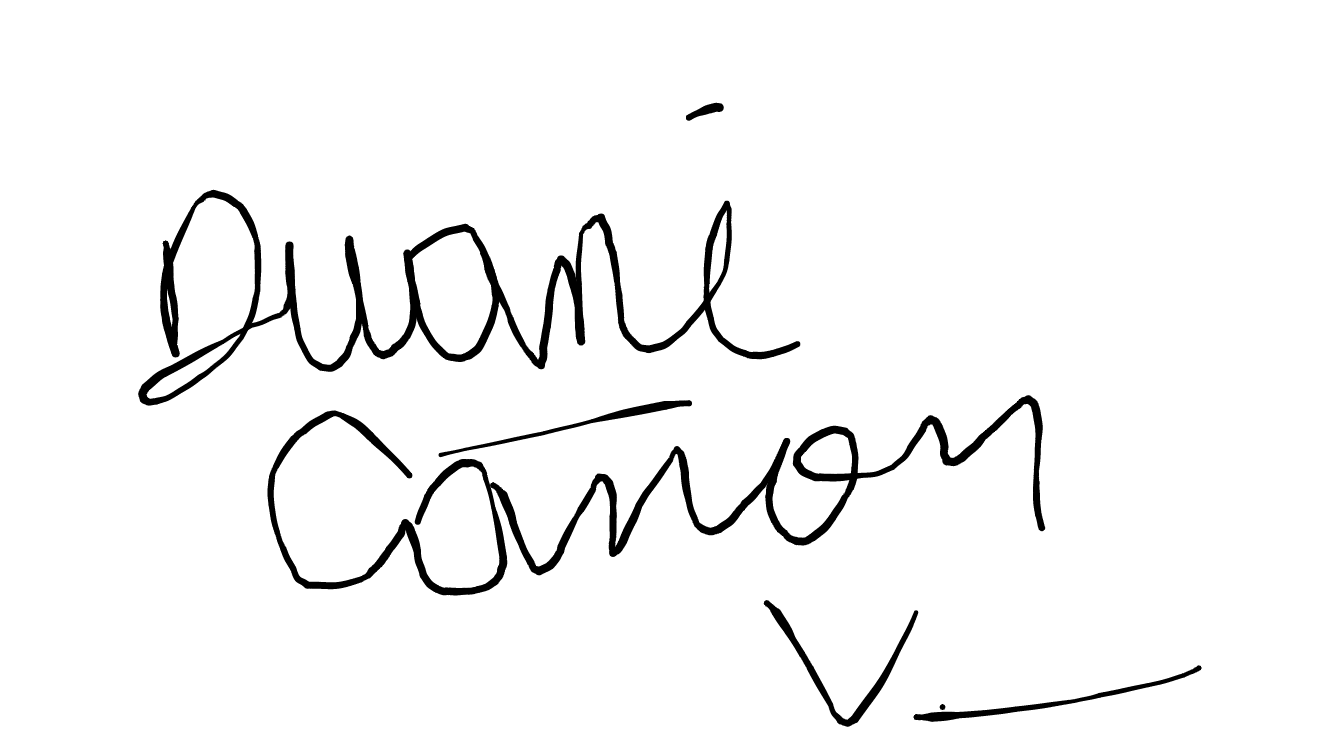 Duane
Canon
V.